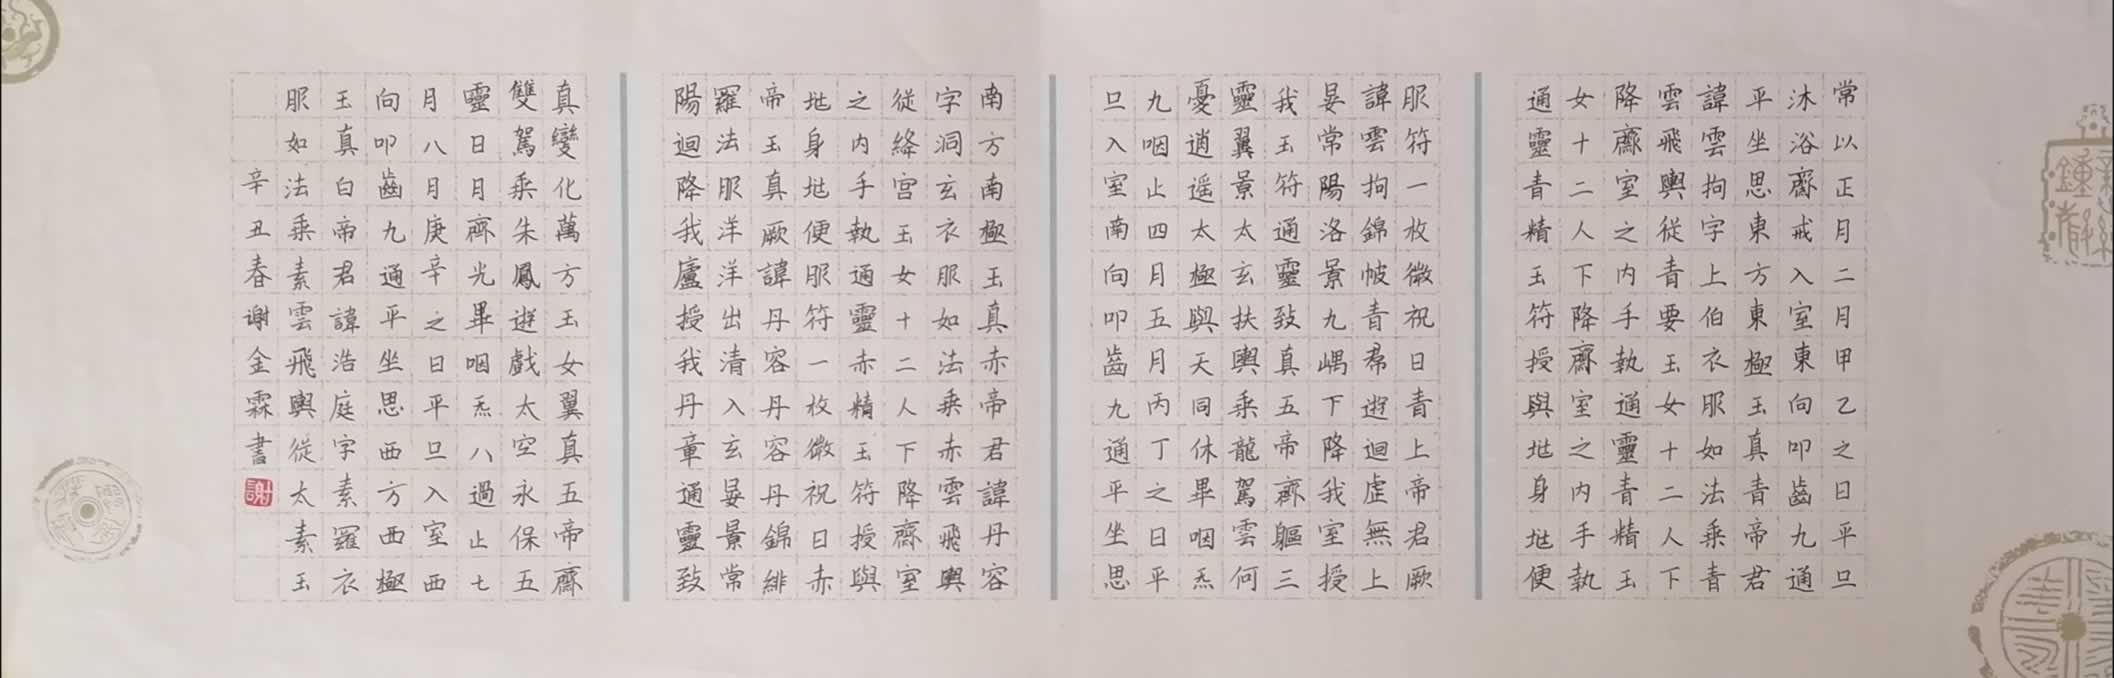 常以正月二月甲乙之日平旦
沐浴齋戒入室東向叩齒九通
平坐思東方東極玉真青帝君
諱雲拘字上伯衣服如法乗青
雲飛輿從青要玉女十二人下
降齋室之内手執通靈青精玉
女十二人下降齋室之内手執
通靈青精玉符授與地身地便
服符一枚微祝日青上帝君厥
諱雲拘錦帔青帬遊迴虚無上
晏常陽洛景九嵎下降我室授
我玉符通靈致真五帝齋軀三
靈翼景太玄扶輿乗龍駕雲何
憂逍遥太極與天同休畢咽炁
九咽止四月五月丙丁之日平
旦入室南向叩齒九通平坐思
南方南極玉真赤帝君諱丹容
字洞玄衣服如法乗赤雲飛輿
從絳宫玉女十二人下降齋室
之内手執通靈赤精玉符授與
地身地便服符一枚微祝日赤
帝玉真厥諱丹容丹容丹錦緋
羅法服洋洋出清入玄晏景常
陽迴降我廬授我丹章通靈致
真變化萬方玉女翼真五帝齋
雙駕乗朱鳳遊戲太空永保五
靈日月齋光畢咽炁八過止七
月八月庚辛之日平旦入室西
向叩齒九通平坐思西方西極
玉真白帝君諱浩庭字素羅衣
服如法乗素雲飛輿從太素玉
辛丑春谢金霖書
謝